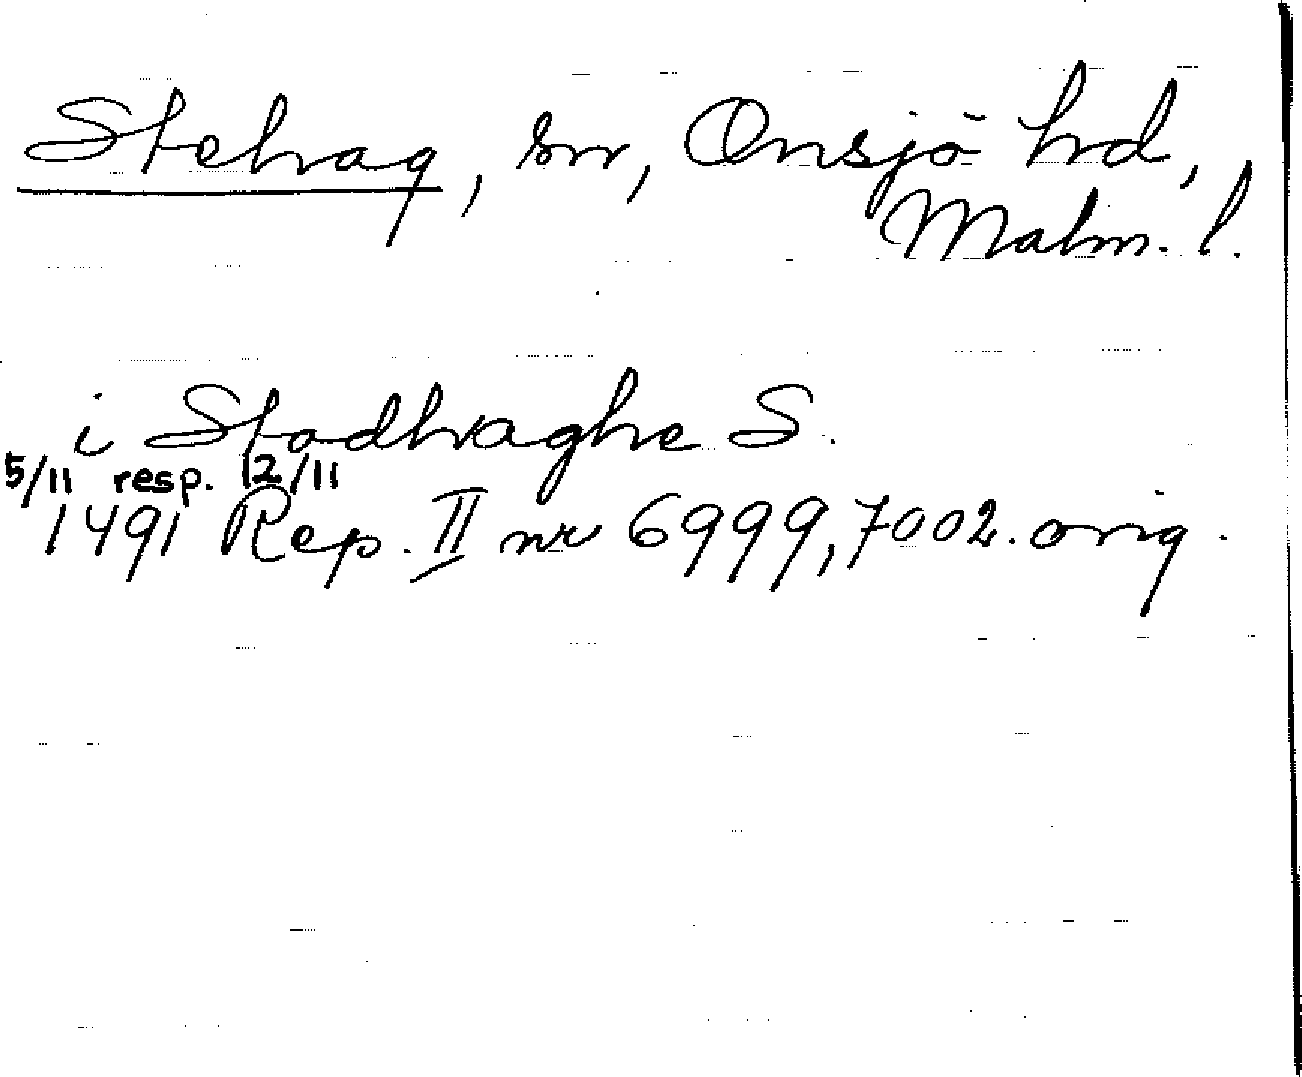 Stehag, sn, Onsjö hd,
Malm. l.
i Stodhraghe S.
5/11 resp. 12/11
1491 Rep. II nr 6999, 7002. orig.